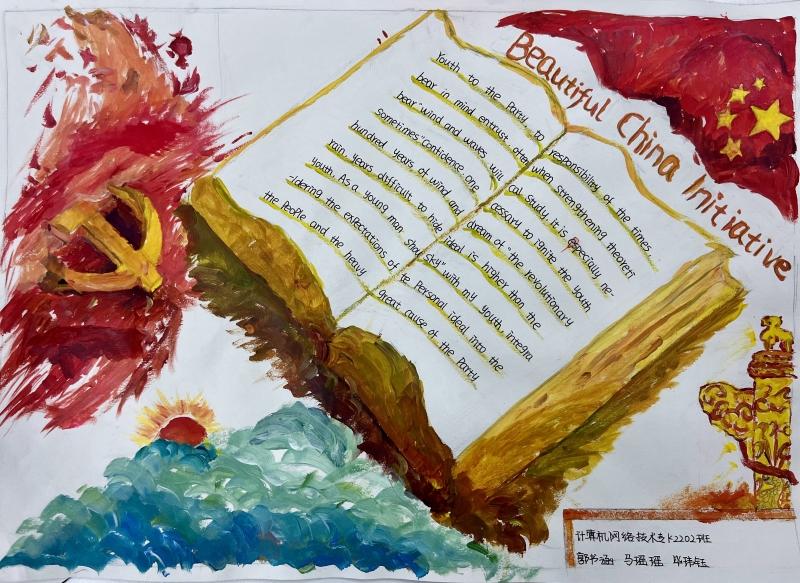 Beautiful China Initiative
Youth to the Party to
bear in mind entrust often
bear "wind and waves will
Sometimes" Confidence one
hundred years of wind and
rain years difficult to hide
Youth. As a young man shoul
-idering the expectations of
the People and the heavy
responsibility of the times,
when strengthening theoreti
cal study, it is especially ne-
cessary to ignite the youth
dream of "the revolutionary
ideal is higher than the
sky" with my youth, integra
te Personal ideal into the
great cause of the Party
计算机网络技术专K2202班
郭书涵 马瑶瑶